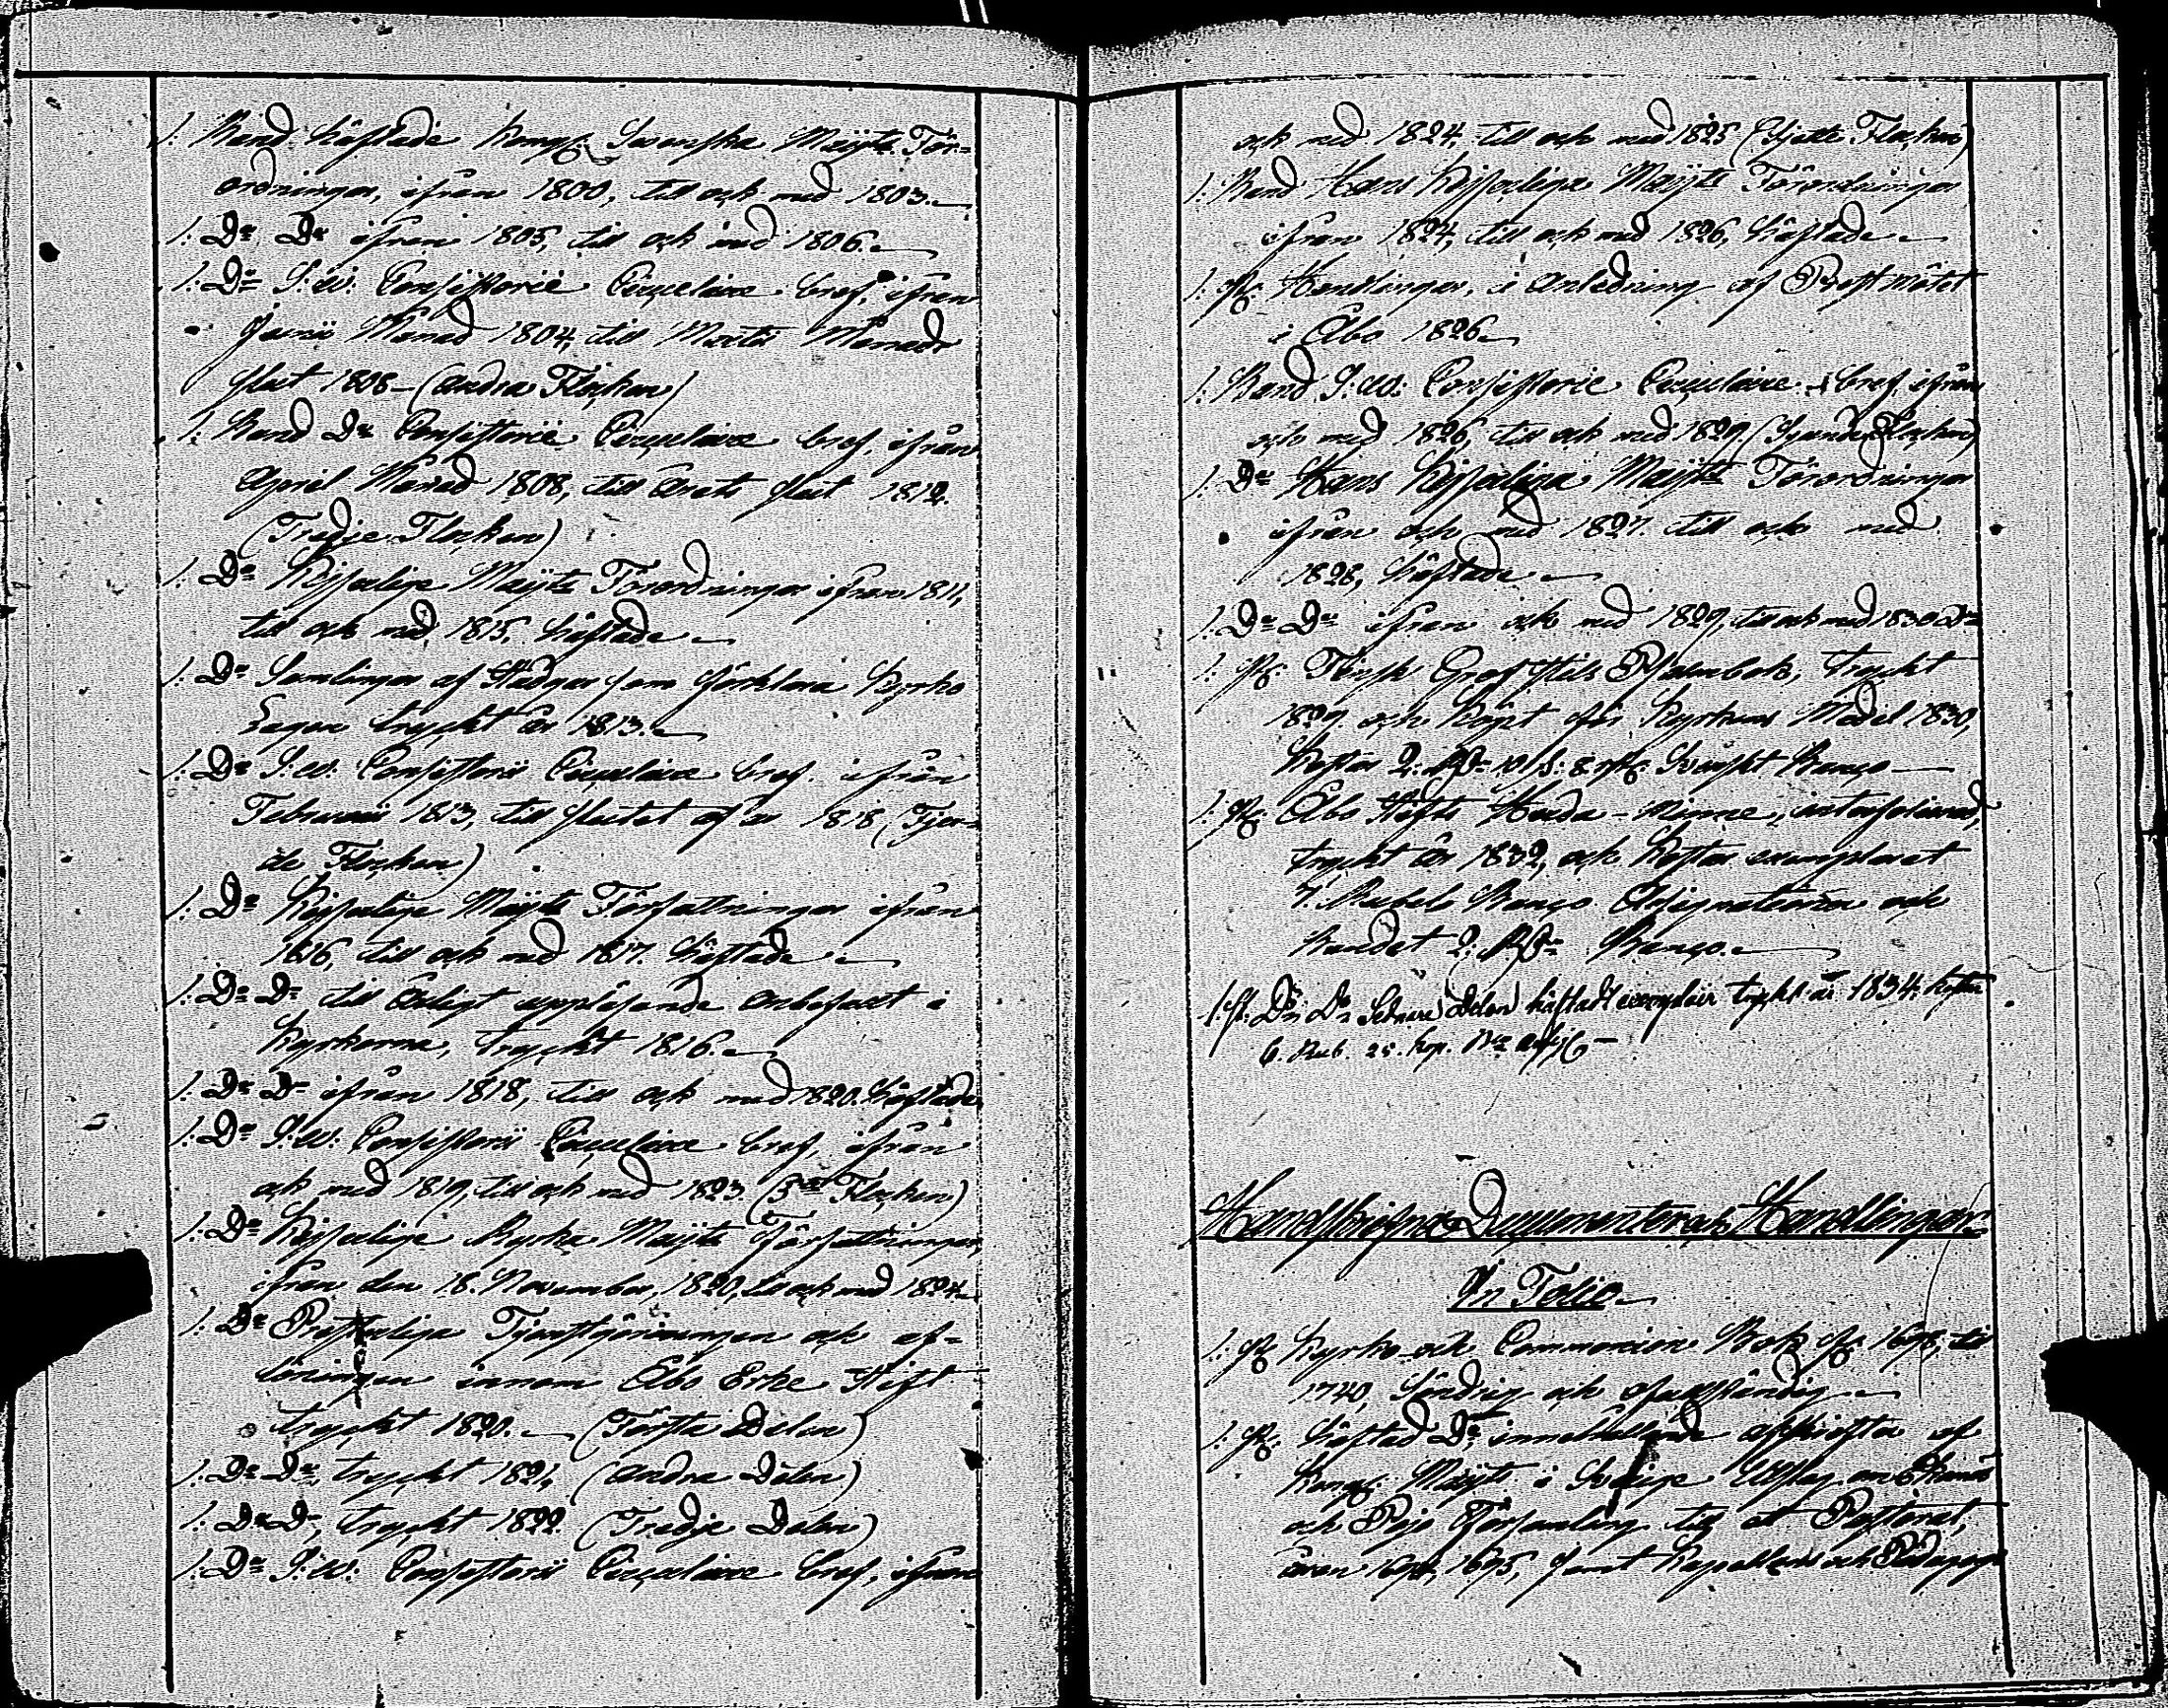 1: Band häftade Kongl: Svenska Maij:ts För-
ordningar, ifrån 1800, till och med 1803.
1: Do Do ifrån 1805, till och med 1806.
1: Do S: w: Consistorii Circulaire bref, ifrån
Junii Månad 1804, till Martii Månads
slut 1808 (Andra Flocken)
1: Band Do Consistorii Circulaire bref, ifrån
April Månad 1808, till Årets slut 1812.
(Tredje Flocken)
1: Do Kejserlige Maij:ts Förordningar ifrån 1811,
till och med 1815. häftade
1: Do Samlingar af Stadgar som förklara Kyrko
Lagen tryckt år 1813.
1: Do S: w: Consistorii Circulaire bref ifrån
Februarii 1813, till slutet af år 1818 (Fjer-
de Flocken)
1: Do Kejserlige Maij:ts Författningar ifrån
1816, till och med 1817. häftade
1: Do Do till årligt uppläsande anbefalt i
Kyrkorna, tryckt 1816.
1: Do Do ifrån 1818, till och med 1820. häftade
1: Do S: w: Consistorii Circulaire bref, ifrån
och med 1819, till och med 1823. (5te Flocken)
1: Do Kejserlige Ryska Maij:ts Författningar,
ifrån den 18. November, 1820, till och med 1824.
1: Do Presterliga Tjenstgöringen och af-
löningen innom Åbo Erke Stift
tryckt 1820. (Första Delen)
1: Do Do, tryckt 1821, (Andra Delen)
1: Do Do, tryckt 1822 (Tredje Delen)
1: Do S: w: Consistorii Circulaire bref, ifrån
och med 1824, till och med 1825 (Sjette Flocken)
1: Band Hans Kejserliga Maij:ts Förordningar
ifrån 1824, till och med 1826, häftade
1: st: Handlingar, i Anledning af Prestmötet
i Åbo 1826
1: Band S: w: Consistorii Circulaire bref, ifrån
och med 1826, till och med 1829. (Sjunde Flocken)
1: Do Hans Kejserliga Maij:ts Förordningar
ifrån och med 1827. till och med
1828, häftade
1: Do Do ifrån och med 1829, till och med 1830 Do
1: st: Finsk Grof Stils Psalmbok, tryckt
1829 och köpt för Kyrkans Medel 1830,
kostar 2: RD: 10 s: 8 rst: Svenskt Banco
1: st: Åbo Stifts Herda-Minne, interfolierad,
tryckt år 1832, och kostar exemplaret
7. Rubel Banco Assignationer och
bandet 2: RD: Banco.
1: st: Do Do Senare Delen häftadt exemplair tryckt år 1834. kostar
6. Rub. 25. kop. Bco Ass:
Handskrefna Documenter och Handlingar
In Folio
1: st: Kyrko och Communion Bok fr: 1698, till
1740, söndrig och ofullständig
1: st: häftad Do, innehållande afskrifter af
Kongl: Maij:ts i Sverige Utslag om
och Pojo Församling till et Pastorat,
åren 1694, 1695, samt Kapellans och Pedagogi